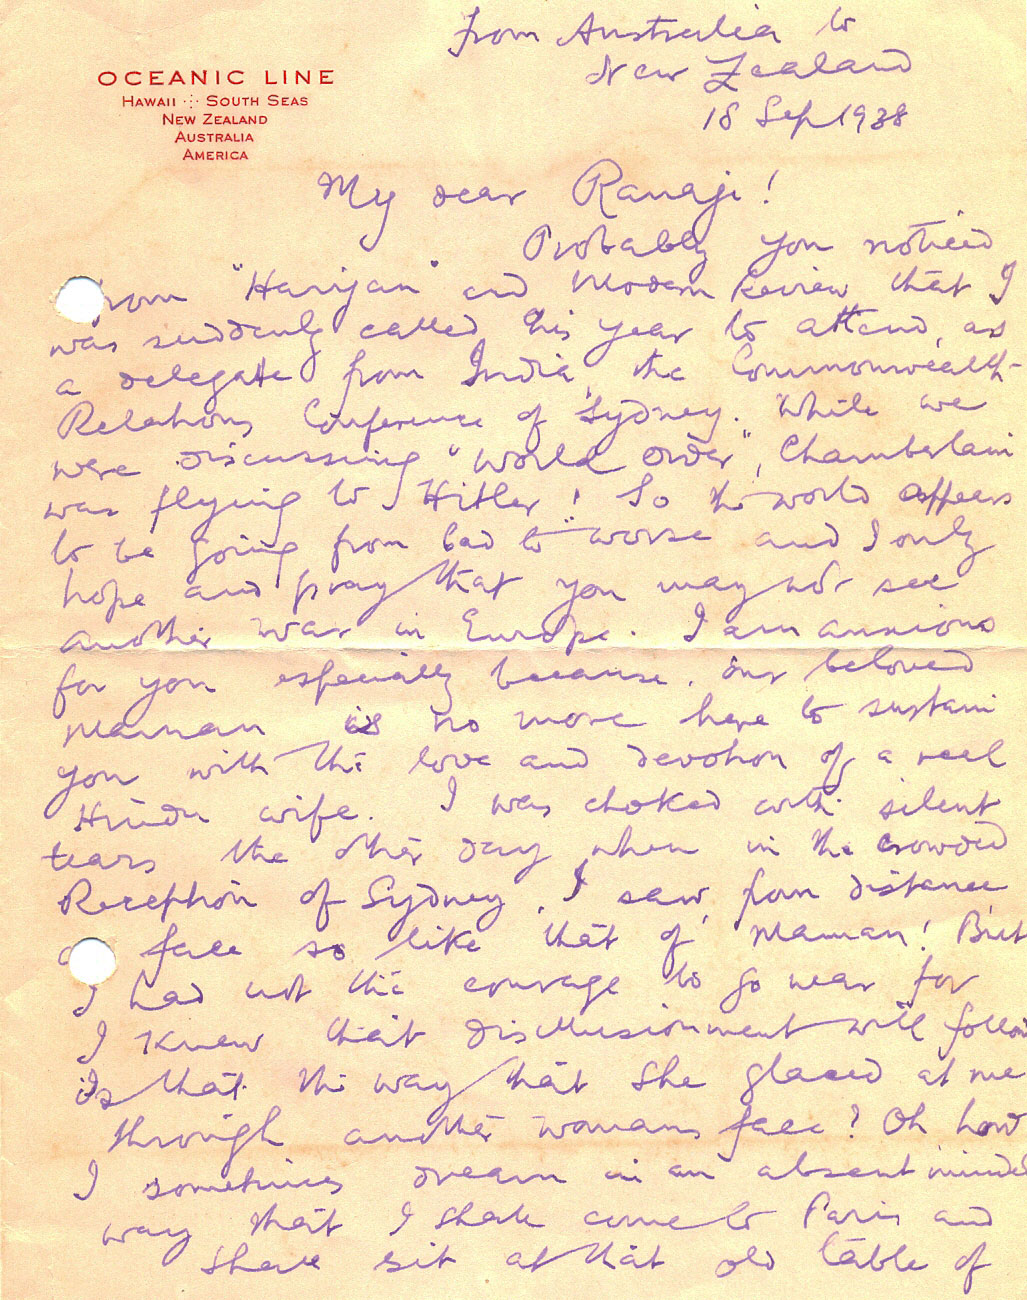 from Australia to
New Zealand
18 Sep 1938
OCEANIC LINE
HAWAII SOUTH SEAS
NEW ZEALAND
AUSTRALIA
AMERICA
My dear Ranaji!
Probably you noticed
rom "Harijan" and Modern Review that I
was suddenly called this year to attend, as
a delegate from India, the Commonwealth-
Relations Conference of Sydney. While we
were discussing "World Order", Chamberlain
was flying to Hitler! So the world appears
to be going from bad to worse and I only
hope and pray that you may not see
another war in Europe. I am anxious
for you especially because, our beloved
Maman is no more here to sustain
you with the love and devotion of a reel
Hindu wife. I was choked with silent
tears the other day when in the crowded
Reception of Sydney, I saw from distance
a face so like that of Maman! But
I had not the courage to go near for
I knew that disillusionment will follow
Is that the way that she glaced at me
through another womans face? Oh how
I sometimes dream in an absent minded
way that I shall come to Paris and
shall sit at that old table of